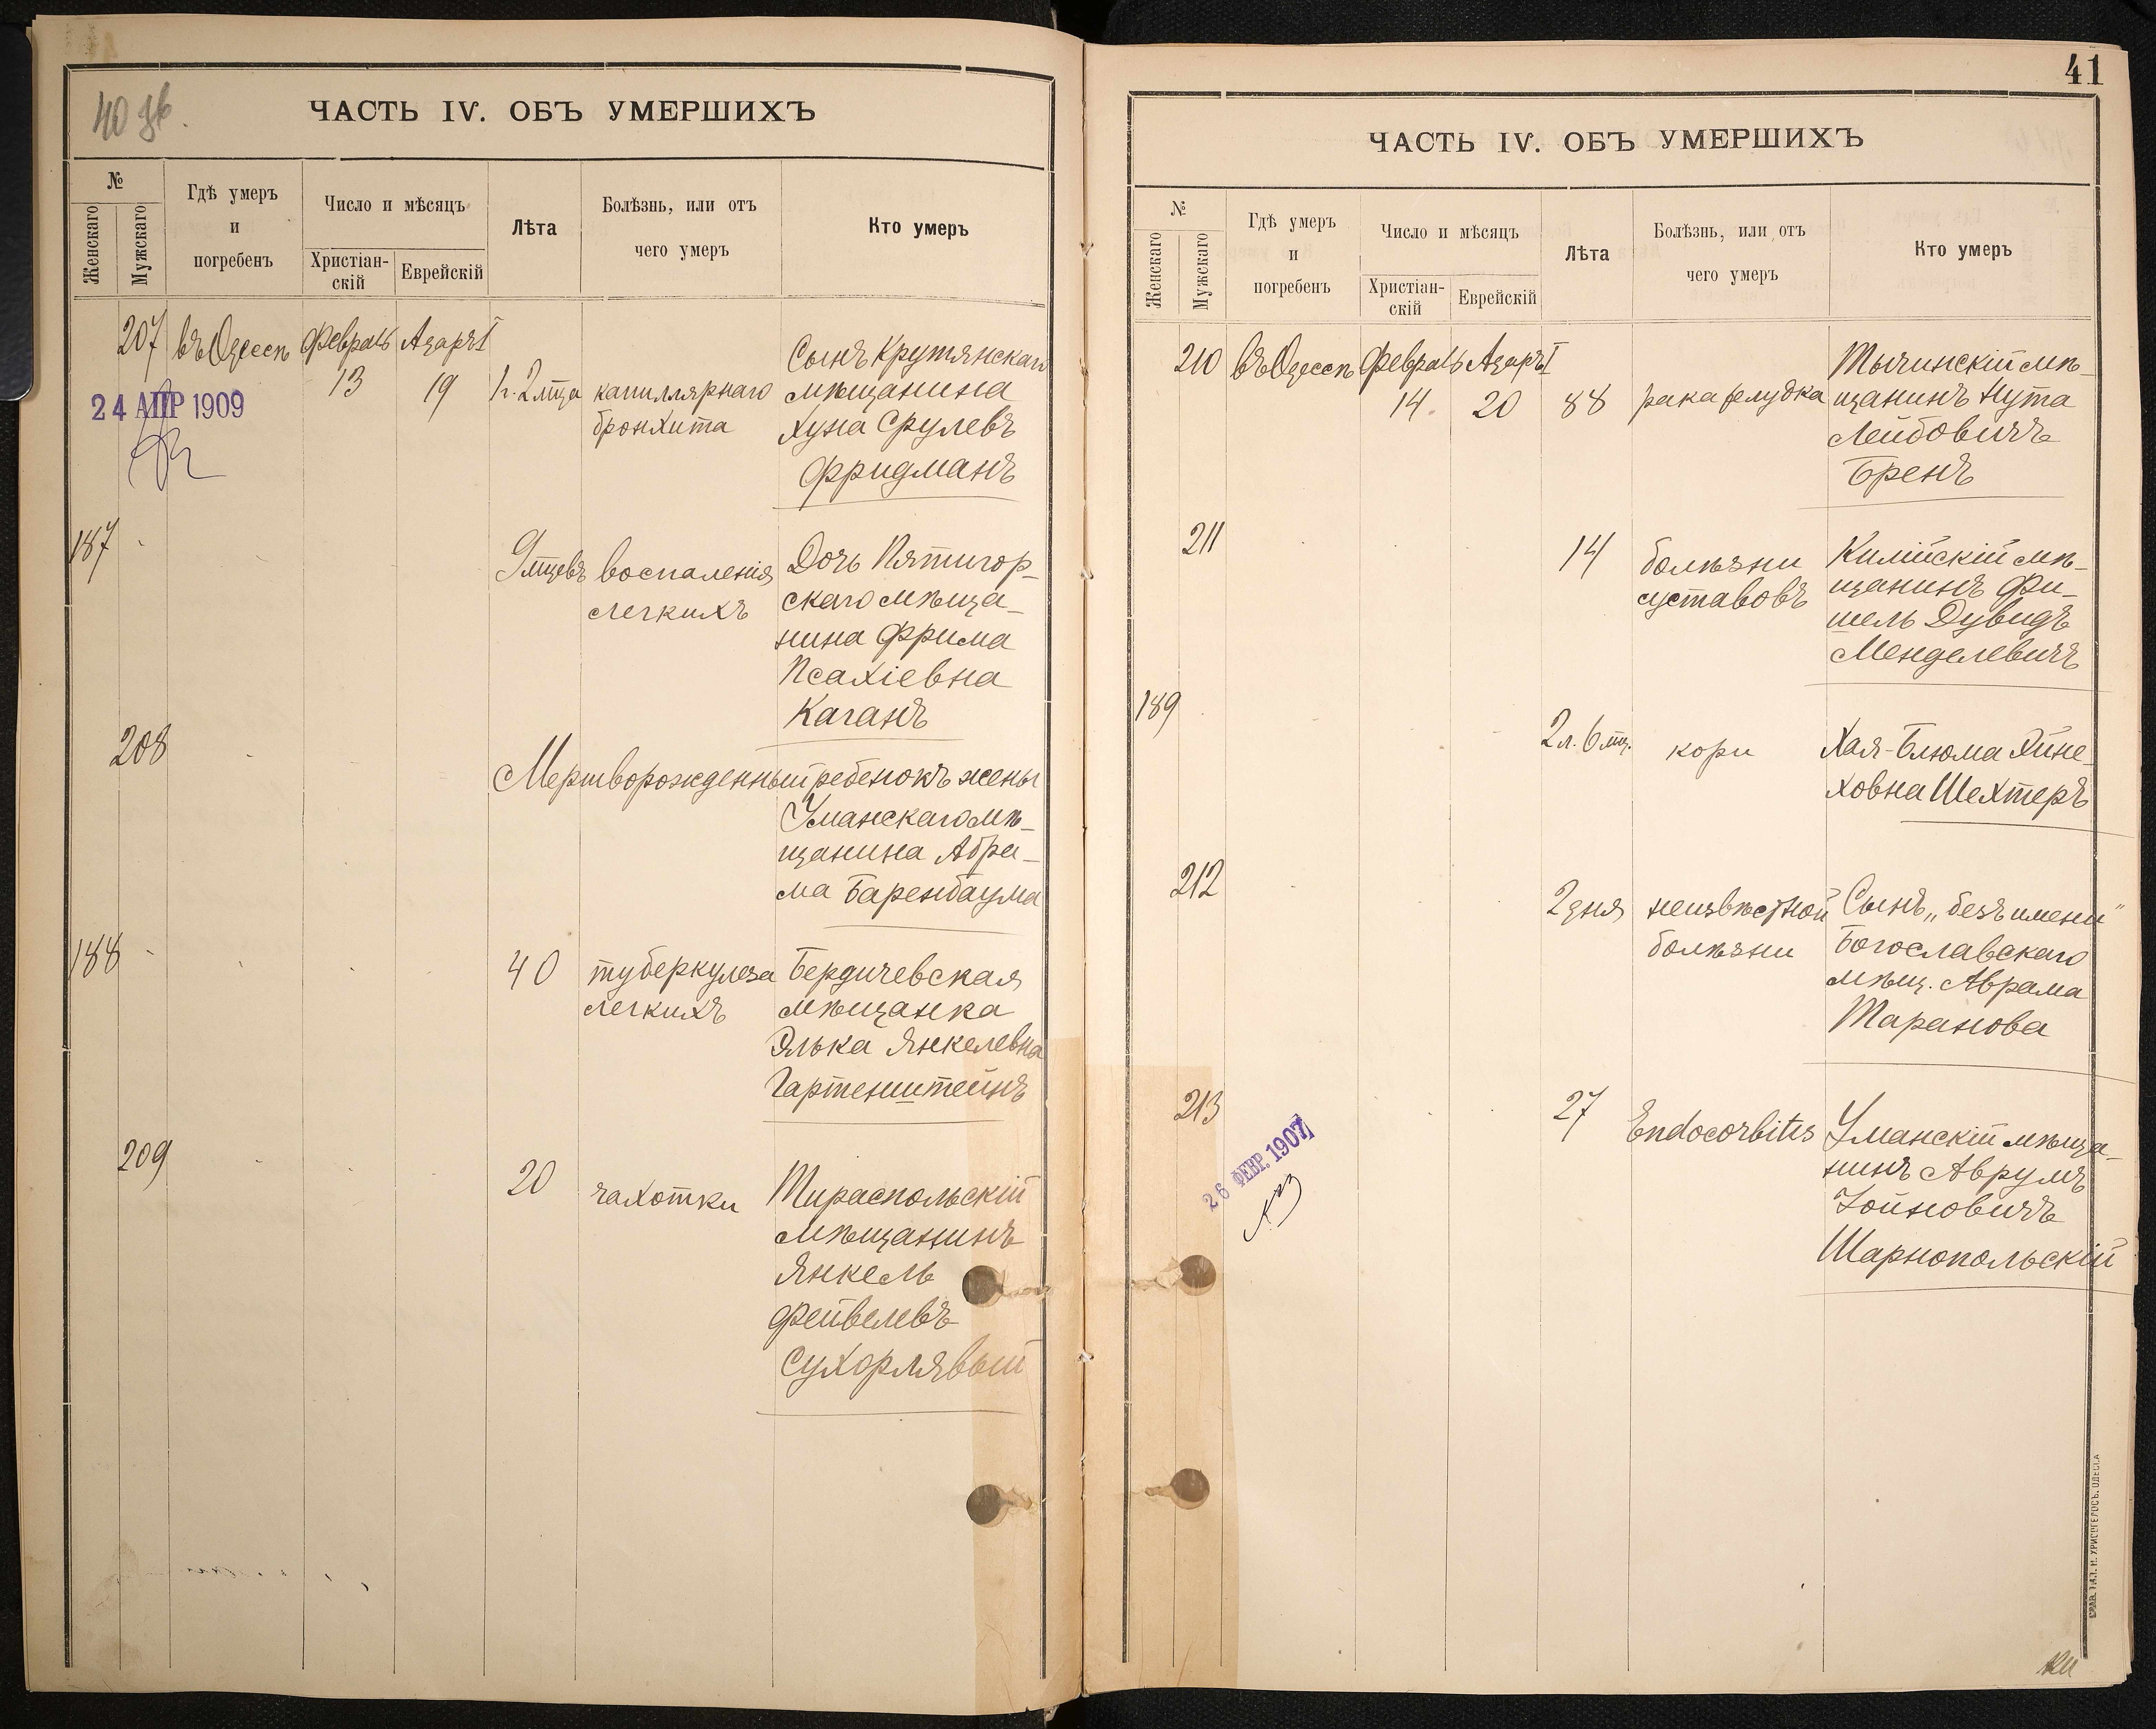 40 зв.
ЧАСТЬ IV. ОБЪ УМЕРШИХЪ
№
Женскаго
Мужскаго
Гдѣ умеръ
и
погребенъ
Число и мѣсяцъ
Христіан-
скій
Еврейскій
Лѣта
Болѣзнь, или отъ
чего умеръ
Кто умеръ
207 въ Одессѣ Февраль Адаръ I
13 19 1 г. 2 мца капиллярнаго
бронхита
Сынъ Крутянскаго
мѣщанина
Хуна Срулевъ
Фридманъ
24 АПР 1909
187
9 мцевъ воспаленія
легкихъ
Дочь Пятигор-
скаго мѣща-
нина Фрима
Псахіевна
Каганъ
208
Мертворожденный ребенокъ жены
Уманскаго мѣ-
щанина Абра-
ма Баренбаума
188
40 туберкулеза
легкихъ
Бердичевская
мѣщанка
Элька Янкелевна
Гартенштейнъ
209
20 чахотки
Тираспольскій
мѣщанинъ
Янкель
Фейвелевъ
Сухорлявый
41
ЧАСТЬ IV. ОБЪ УМЕРШИХЪ
№
Женскаго
Мужскаго
Гдѣ умеръ
и
погребенъ
Число и мѣсяцъ
Христіан-
скій
Еврейскій
Лѣта
Болѣзнь, или отъ
чего умеръ
Кто умеръ
210 въ Одессѣ Февраль Адаръ I
14 20 88 рака желудка
Тычинскій мѣ-
щанинъ Нута
Лейбовичъ
Бренъ
211
14 болѣзни
суставовъ
Килійскій мѣ-
щанинъ Фи-
шель Дувидъ
Менделевичъ
189
2 л. 6 мц. кори
Хая-Блюма Эйне-
ховна Шехтеръ
212
2 дня неизвѣстной
болѣзни
Сынъ „безъ имени"
Богославскаго
мѣщ. Аврама
Таранова
213
27 Endocorbites
Уманскій мѣща-
нинъ Аврумъ
Зойновичъ
Шарнопольскій
26 ФЕВР. 1907